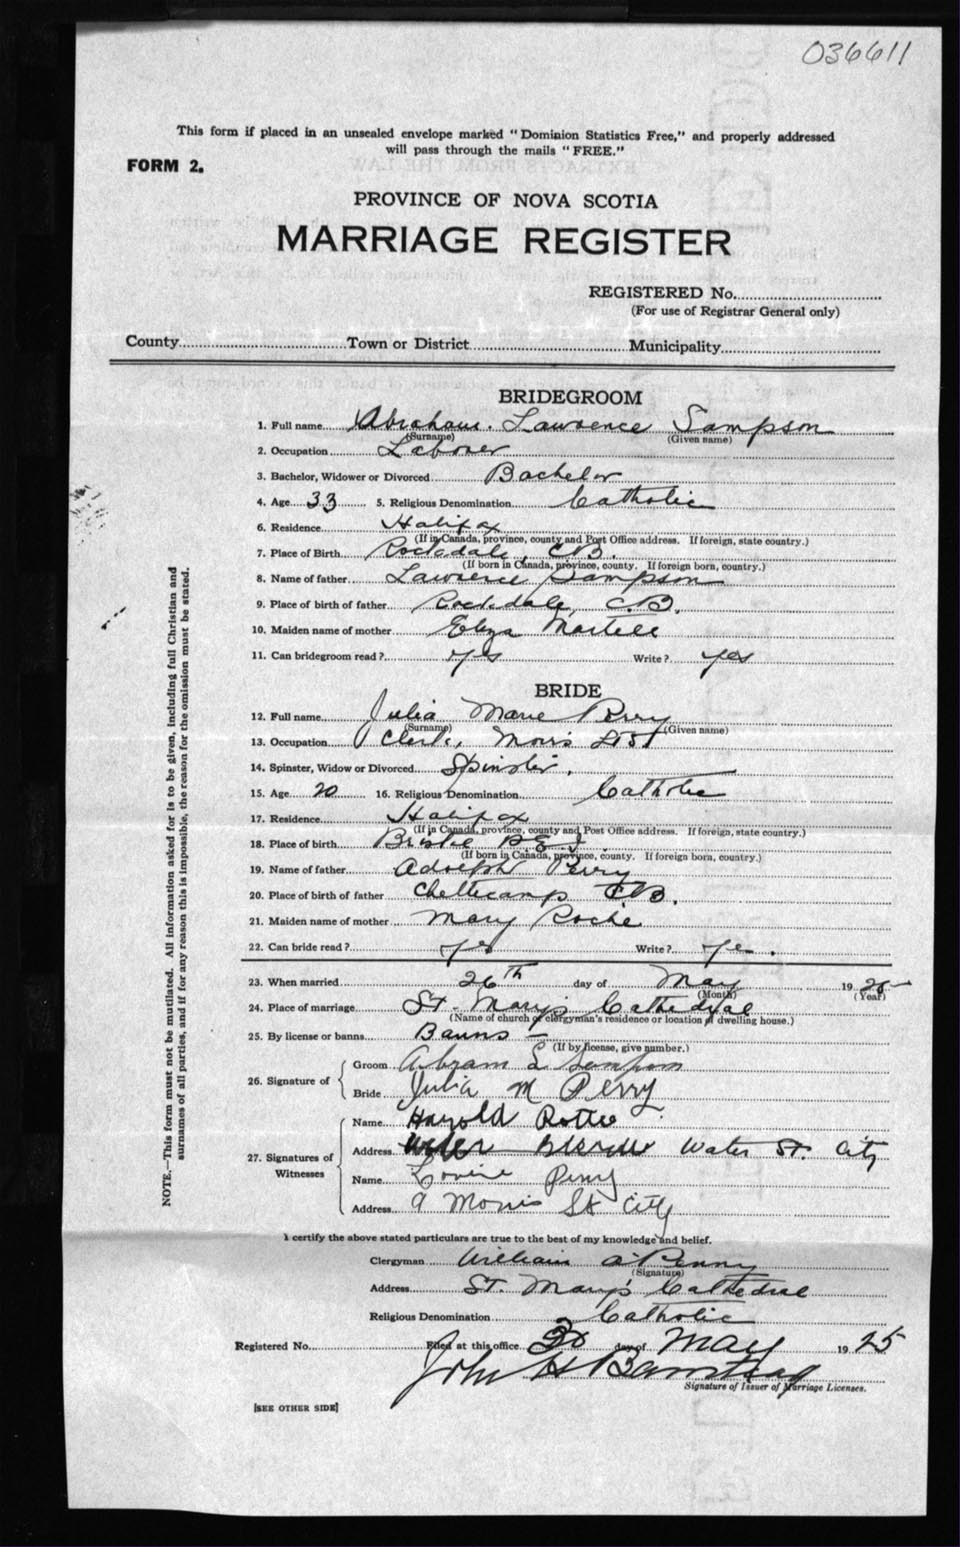 036611
This form if placed in an unsealed envelope marked "Dominion Statistics Free," and properly addressed
will pass through the mails "FREE."
FORM 2.
PROVINCE OF NOVA SCOTIA
MARRIAGE REGISTER
REGISTERED No.
(For use of Registrar General only)
County Town or District Municipality
BRIDEGROOM
1. Full name Abraham Lawrence Sampson
(Surname) (Given name)
2. Occupation Laborer
3. Bachelor, Widower or Divorced Bachelor
4. Age 33 5. Religious Denomination Catholic
6. Residence Halifax
(If in Canada, province, county and Post Office address. If foreign, state country.)
7. Place of Birth Rockdale, C.B.
(If born in Canada, province, county. If foreign born, country.)
8. Name of father Lawrence Sampson
9. Place of birth of father Rockdale, C.B.
10. Maiden name of mother Eliza Martell
11. Can bridegroom read? yes Write? yes
BRIDE
12. Full name Julia Marie Perry
(Surname) (Given name)
13. Occupation Clerk, Morris St
14. Spinster, Widow or Divorced Spinster.
15. Age 20 16. Religious Denomination Catholic
17. Residence Halifax
(If in Canada, province, county and Post Office address. If foreign, state country.)
18. Place of birth P.E.I.
(If born in Canada, province, county. If foreign born, country.)
19. Name of father Adolph Perry
20. Place of birth of father Chetticamp C.B.
21. Maiden name of mother Mary Roche
22. Can bride read? yes Write? ye.
23. When married 26th day of May 1925
(Month) (Year)
24. Place of marriage St. Mary's Cathedral
(Name of church or clergyman's residence or location of dwelling house.)
25. By license or banns Banns
(If by license, give number.)
26. Signature of
Groom Abram L Sampson
Bride Julia M Perry
27. Signatures of Witnesses
Name Harold
Address Water St. City
Name Perry
Address 9 Morris St City
I certify the above stated particulars are true to the best of my knowledge and belief.
Clergyman William Penny
(Signature)
Address St. Mary's Cathedral
Religious Denomination Catholic
Registered No. Filed at this office 30 day of May 1925
John H
Signature of Issuer of Marriage Licenses.
[SEE OTHER SIDE]
NOTE.—This form must not be mutilated. All information asked for is to be given, including full Christian and
surnames of all parties, and if for any reason this is impossible, the reason for the omission must be stated.